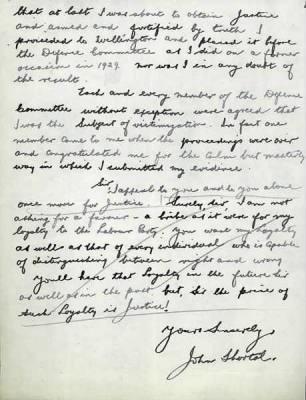 that at last I was about to obtain Justice
and armed and fortified by truth I
proceeded to Wellington and placed it before
the Defence Committee as I did on a former
occasion in 1929. nor was I in any doubt of
the result.
Each and every member of the Defence
Committee without exception were agreed that
I was the Subject of victimization. In fact one
member came to me when the proceedings were over
and congratulated me for the calm but masterly
way in which I submitted my evidence.
Sir
I appeal to you and to you alone
once more for Justice. Surely, sir, I am not
asking for a favour - a bribe as it were for my
loyalty to the Labour Party. You want my Loyalty
as well as that of every individual who is capable
of distinguishing between right and wrong
You'll have that Loyalty in the future Sir
as well as in the past but, Sir the price of
such Loyalty is Justice!
Yours Sincerely,
John Shortal.